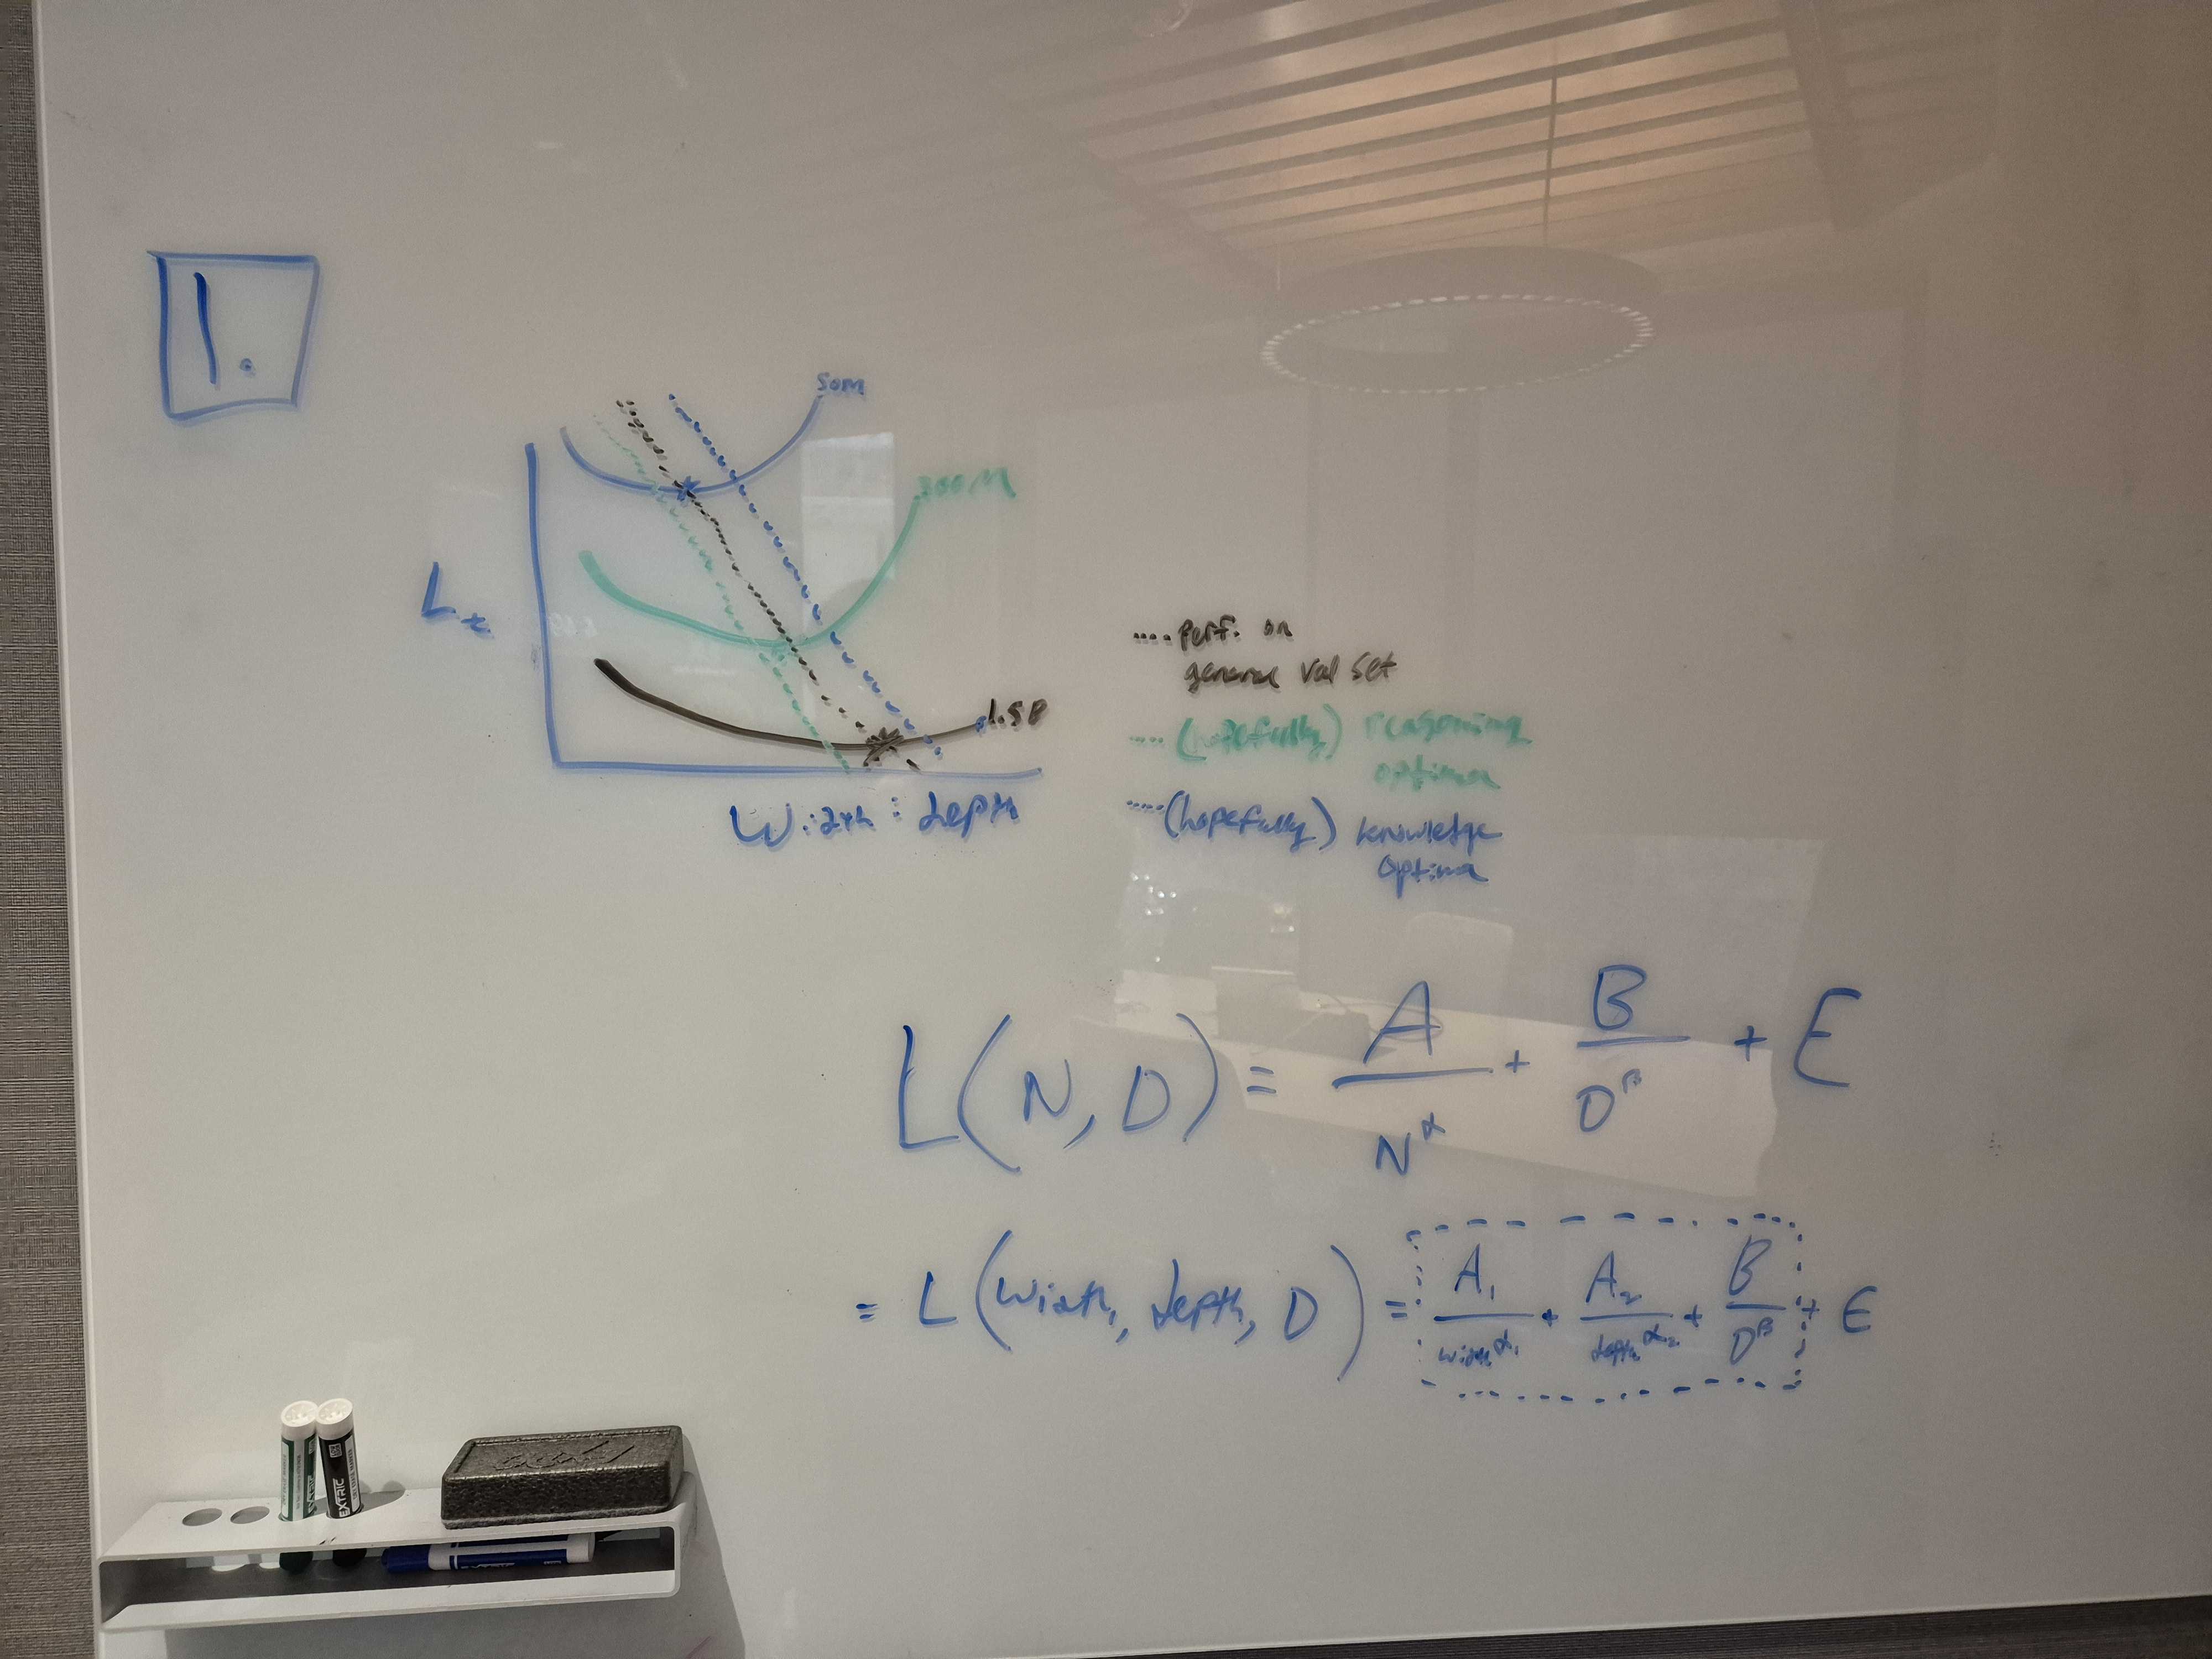 1.
50M
300M
L
1.5B
Width : depth
..... perf. on
general val set
..... (hopefully) reasoning
optima
..... (hopefully) knowledge
optima
L(N, D) = A/N^α + B/D^β + E
= L(width, depth, D) = A₁/width^α₁ + A₂/depth^α₂ + B/D^β + E
EXTRIC